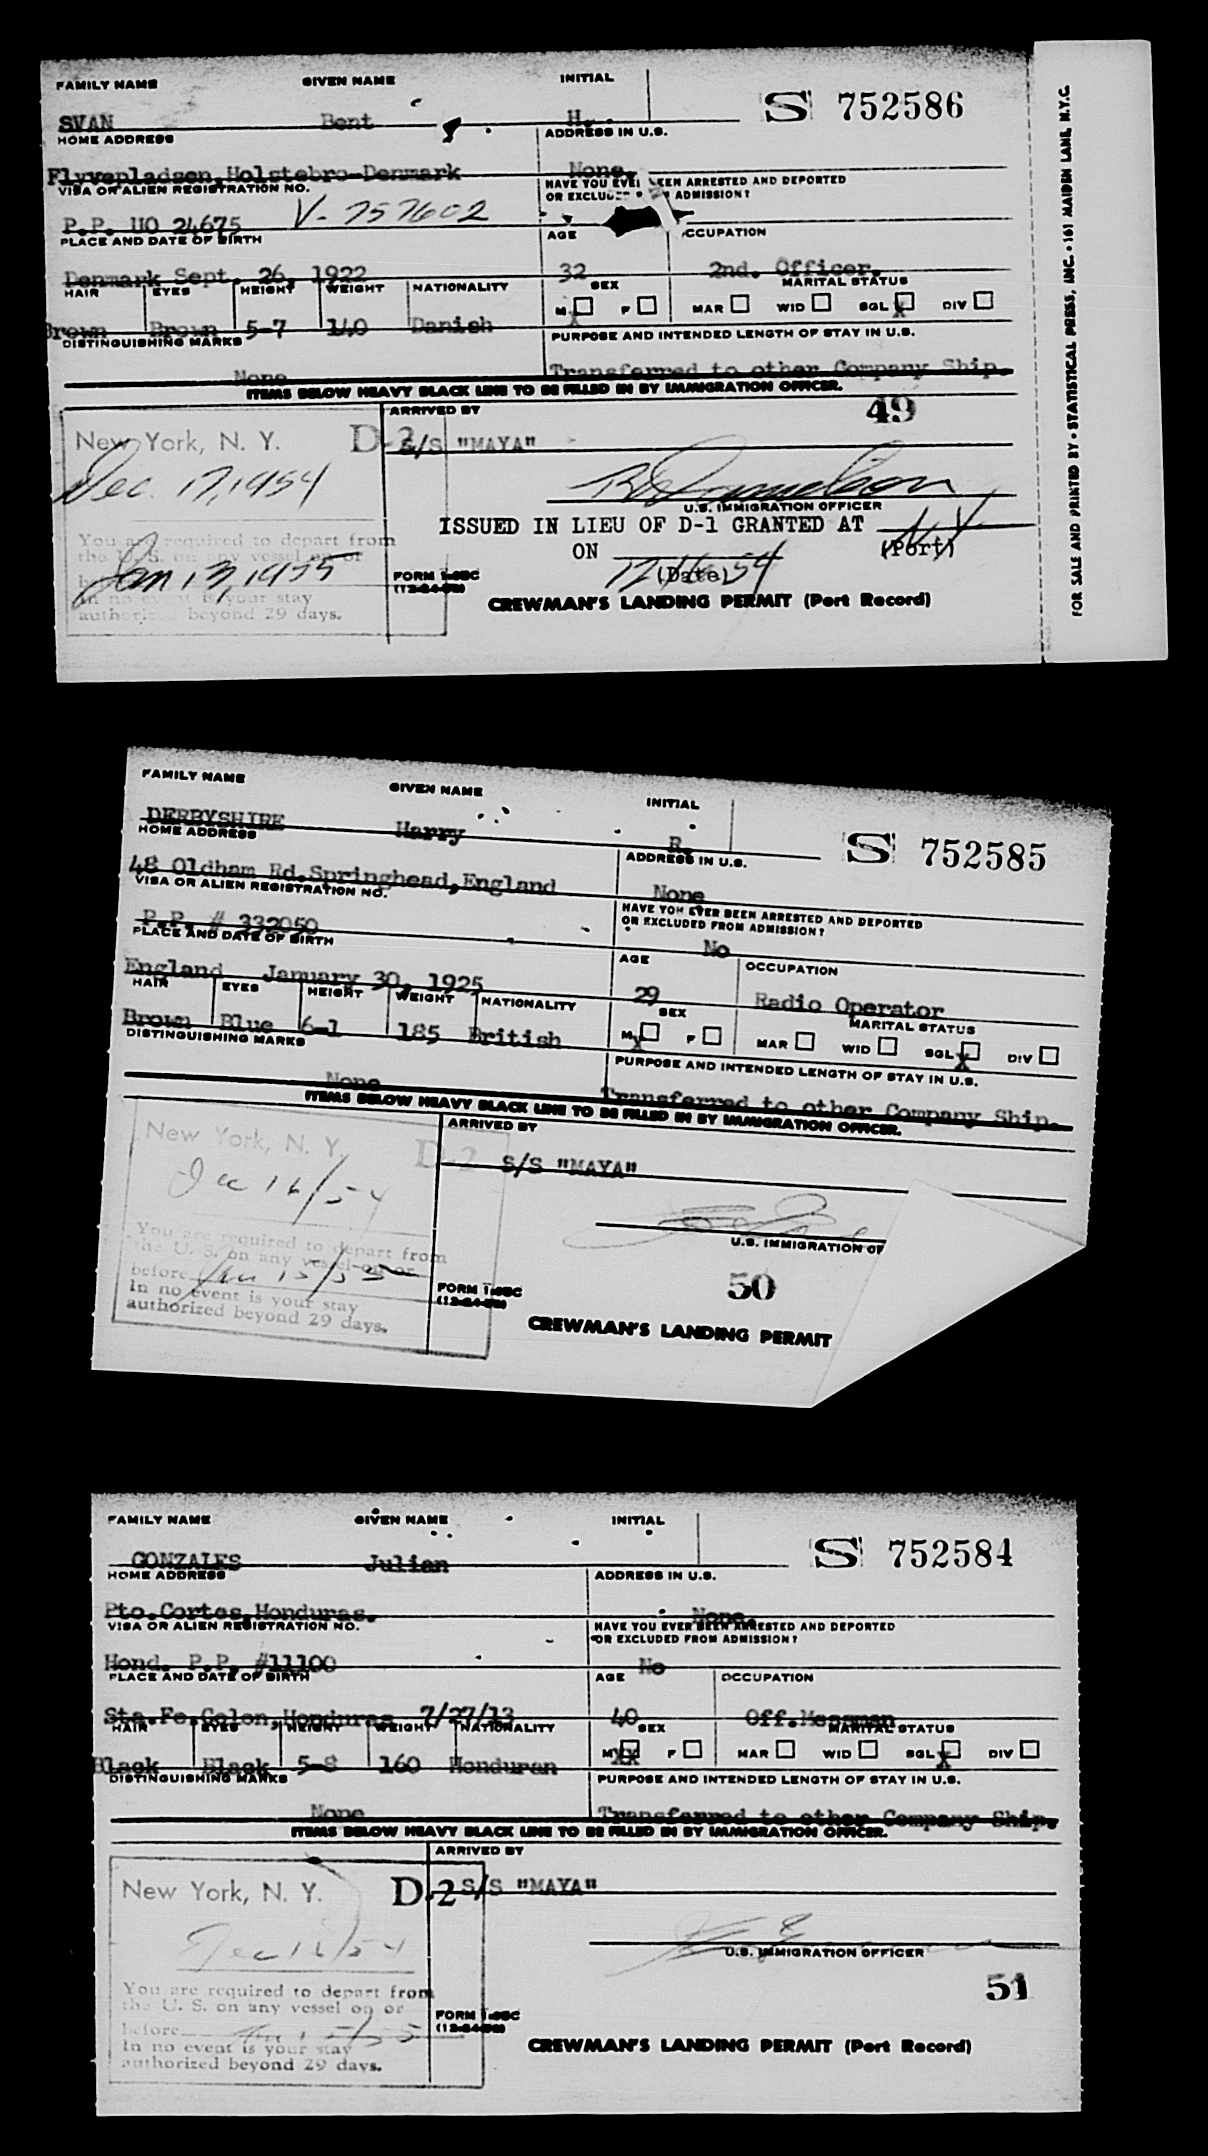 FAMILY NAME GIVEN NAME INITIAL
S 752586
SVAN Bent H.
HOME ADDRESS ADDRESS IN U.S.
Flyvepladsen, Holstebro-Denmark None.
VISA OR ALIEN REGISTRATION NO. HAVE YOU EVER BEEN ARRESTED AND DEPORTED
OR EXCLUDED ADMISSION?
P.P. UO 24675 V-757602
PLACE AND DATE OF BIRTH AGE OCCUPATION
Denmark Sept. 26, 1922 32 2nd. Officer.
HAIR EYES HEIGHT WEIGHT NATIONALITY SEX MARITAL STATUS
M X F MAR WID SGL X DIV
Brown Brown 5-7 140 Danish
DISTINGUISHING MARKS PURPOSE AND INTENDED LENGTH OF STAY IN U.S.
None Transferred to other Company Ship.
ITEMS BELOW HEAVY BLACK LINE TO BE FILLED IN BY IMMIGRATION OFFICER.
ARRIVED BY 49
New York, N. Y. D-2 S/S "MAYA"
Dec. 17, 1954
U.S. IMMIGRATION OFFICER
ISSUED IN LIEU OF D-1 GRANTED AT N.Y.
You are required to depart from
the U. S. on any vessel on or
ON 12/16/54 (Port)
(Date)
Jan 13, 1955
FORM I-95C
in no event is your stay
authorized beyond 29 days.
CREWMAN'S LANDING PERMIT (Port Record)
FOR SALE AND PRINTED BY • STATISTICAL PRESS, INC. • 161 MAIDEN LANE, N.Y.C.
FAMILY NAME GIVEN NAME INITIAL
S 752585
DERBYSHIRE Harry R.
HOME ADDRESS ADDRESS IN U.S.
48 Oldham Rd. Springhead, England None
VISA OR ALIEN REGISTRATION NO. HAVE YOU EVER BEEN ARRESTED AND DEPORTED
OR EXCLUDED FROM ADMISSION?
P.P. # 332050 No
PLACE AND DATE OF BIRTH AGE OCCUPATION
England January 30, 1925 29 Radio Operator
HAIR EYES HEIGHT WEIGHT NATIONALITY SEX MARITAL STATUS
M X F MAR WID SGL X DIV
Brown Blue 6-1 185 British
DISTINGUISHING MARKS PURPOSE AND INTENDED LENGTH OF STAY IN U.S.
None Transferred to other Company Ship.
ITEMS BELOW HEAVY BLACK LINE TO BE FILLED IN BY IMMIGRATION OFFICER.
ARRIVED BY
New York, N. Y. D-2 S/S "MAYA"
Dec 16/54
U.S. IMMIGRATION OF
You are required to depart from
the U. S. on any vessel on or
before Jan 15/55
In no event is your stay
authorized beyond 29 days.
FORM I-95C
50
CREWMAN'S LANDING PERMIT
FAMILY NAME GIVEN NAME INITIAL
S 752584
GONZALES Julian
HOME ADDRESS ADDRESS IN U.S.
Pto. Cortes, Honduras. None.
VISA OR ALIEN REGISTRATION NO. HAVE YOU EVER BEEN ARRESTED AND DEPORTED
OR EXCLUDED FROM ADMISSION?
Hond. P.P. #11100 No
PLACE AND DATE OF BIRTH AGE OCCUPATION
Sta. Fe. Colon, Honduras 7/27/13 40 Off. Messman
HAIR EYES HEIGHT WEIGHT NATIONALITY SEX MARITAL STATUS
M XX F MAR WID SGL X DIV
Black Black 5-8 160 Honduran
DISTINGUISHING MARKS PURPOSE AND INTENDED LENGTH OF STAY IN U.S.
None Transferred to other Company Ship.
ITEMS BELOW HEAVY BLACK LINE TO BE FILLED IN BY IMMIGRATION OFFICER.
ARRIVED BY
New York, N. Y. D-2 S/S "MAYA"
Dec 16/54
U.S. IMMIGRATION OFFICER
51
You are required to depart from
the U. S. on any vessel on or
before Jan 15/55
In no event is your stay
authorized beyond 29 days.
FORM I-95C
CREWMAN'S LANDING PERMIT (Port Record)